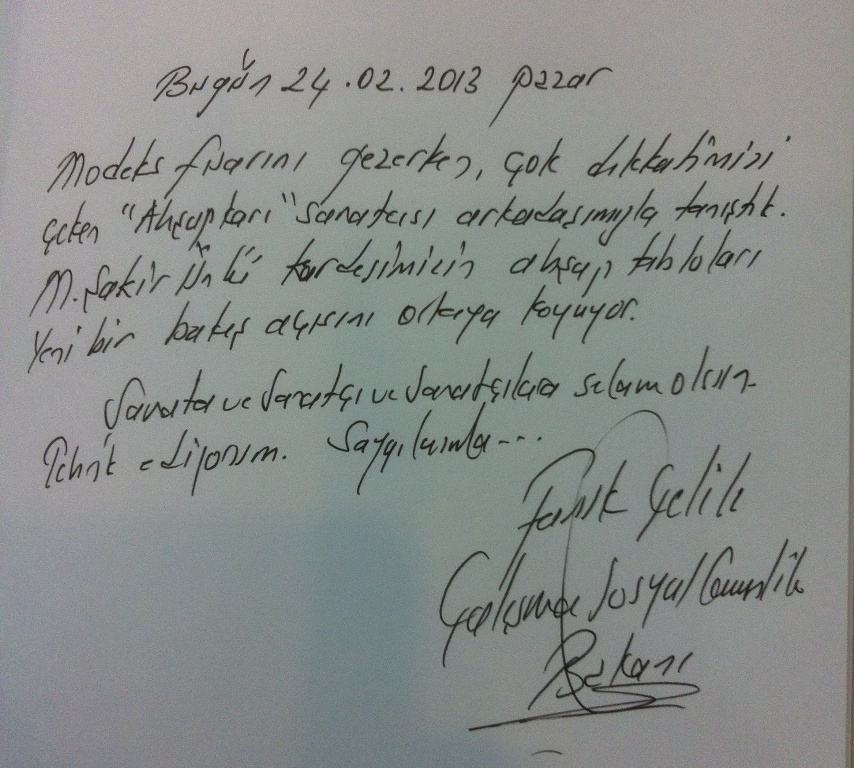 Bugün 24.02.2013 pazar
Modeks fuarını gezerken, çok dikkatimizi
çeken "Ahşapkarı" sanatcısı arkadaşımızla tanıştık.
M. Şakir kardeşimizin ahşap tabloları
Yeni bir bakış açısını ortaya koyuyor.
Sanata ve Sanatçı ve Sanatçılara selam olsun.
Tebrik ediyorum. Saygılarımla---
Faruk Çelik
Çalışma Sosyal Güvenlik
Bakanı